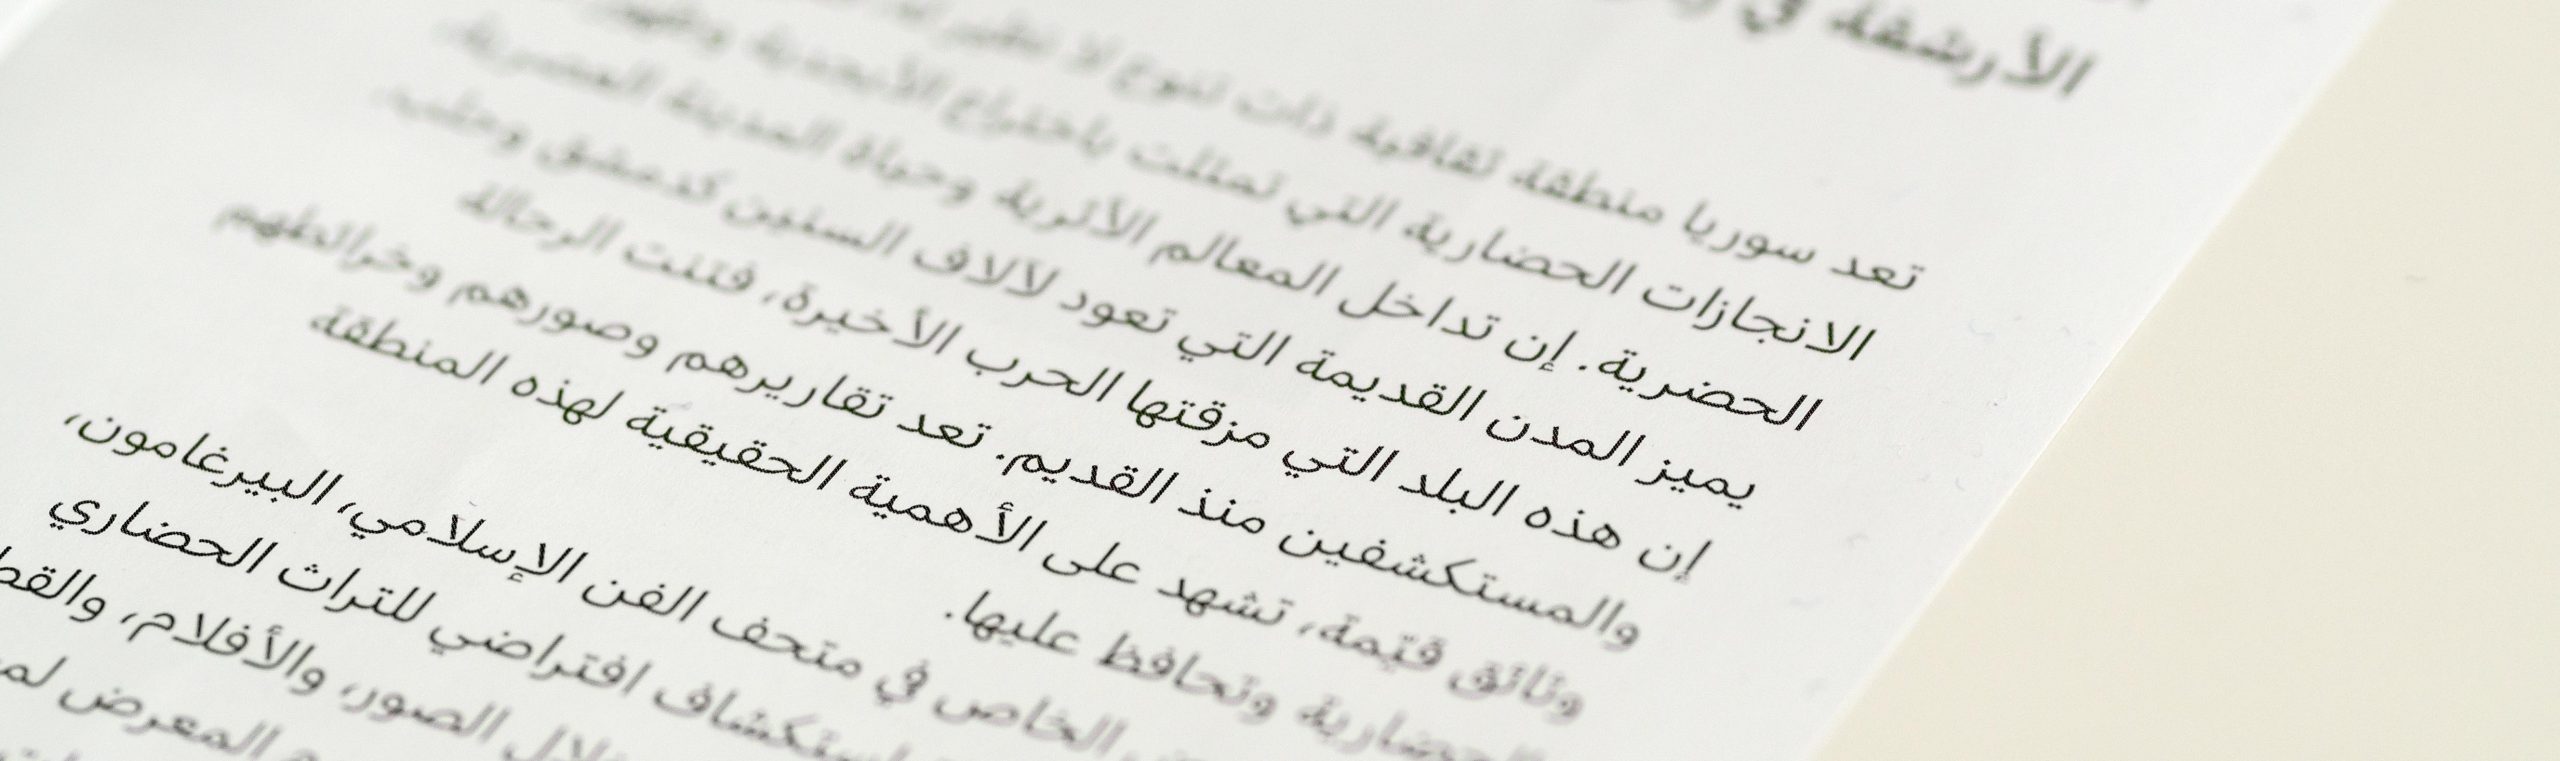 الأرشفة في
تعد سوريا منطقة ثقافية ذات تنوع لا نظير له
الانجازات الحضارية التي تمثلت باختراع الأبجدية وظهور
الحضرية. إن تداخل المعالم الأثرية وحياة المدينة العصرية،
يميز المدن القديمة التي تعود لآلاف السنين كدمشق وحلب.
إن هذه البلد التي مزقتها الحرب الأخيرة، فتنت الرحالة
والمستكشفين منذ القديم. تعد تقاريرهم وصورهم وخرائطهم
وثائق قيّمة، تشهد على الأهمية الحقيقية لهذه المنطقة
الحضارية وتحافظ عليها.
الخاص في متحف الفن الإسلامي، البيرغامون،
استكشاف افتراضي للتراث الحضاري
خلال الصور، والأفلام، والقط
المعرض لم